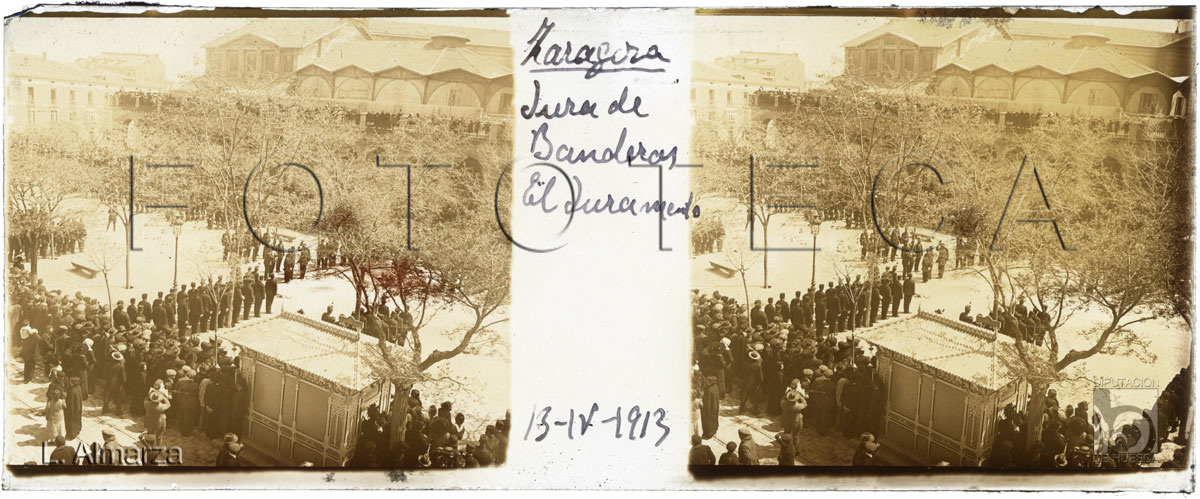 Zaragoza
Jura de
Banderas
El Juramento
13-IV-1913
FOTOTECA
L. Almarza
DIPUTACIÓN
DE HUESCA